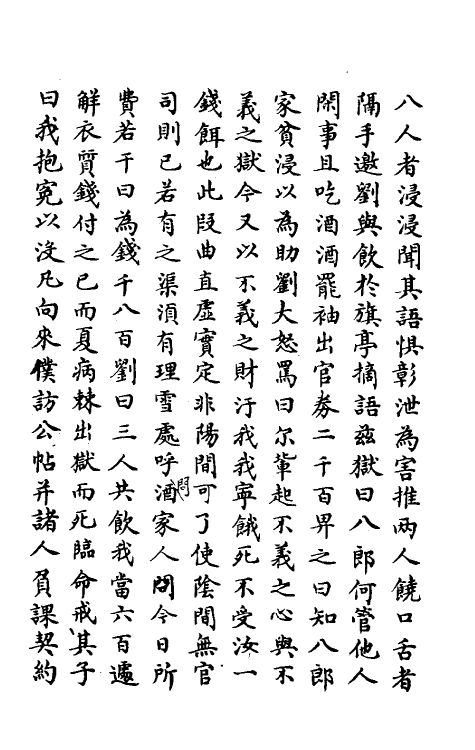 八人者浸浸聞其語惧彰泄為害推两人饒口舌者
隔手邀劉與飲於旗亭摘語兹獄曰八郎何管他人
閑事且吃酒酒罷袖出官券二千百畀之曰知八郎
家貧浸以為助劉大怒罵曰尔輩起不義之心與不
義之獄今又以不義之財汙我我寧餓死不受汝一
錢餌也此段曲直虚實定非陽間可了使陰間無官
司則已若有之渠湏有理雪處呼酒家人問今日所
問
費若干曰為錢千八百劉曰三人共飲我當六百遽
解衣質錢付之已而夏病棘出獄而死臨命戒其子
曰我抱寃以沒凡向來僕訪公帖并諸人負課契約